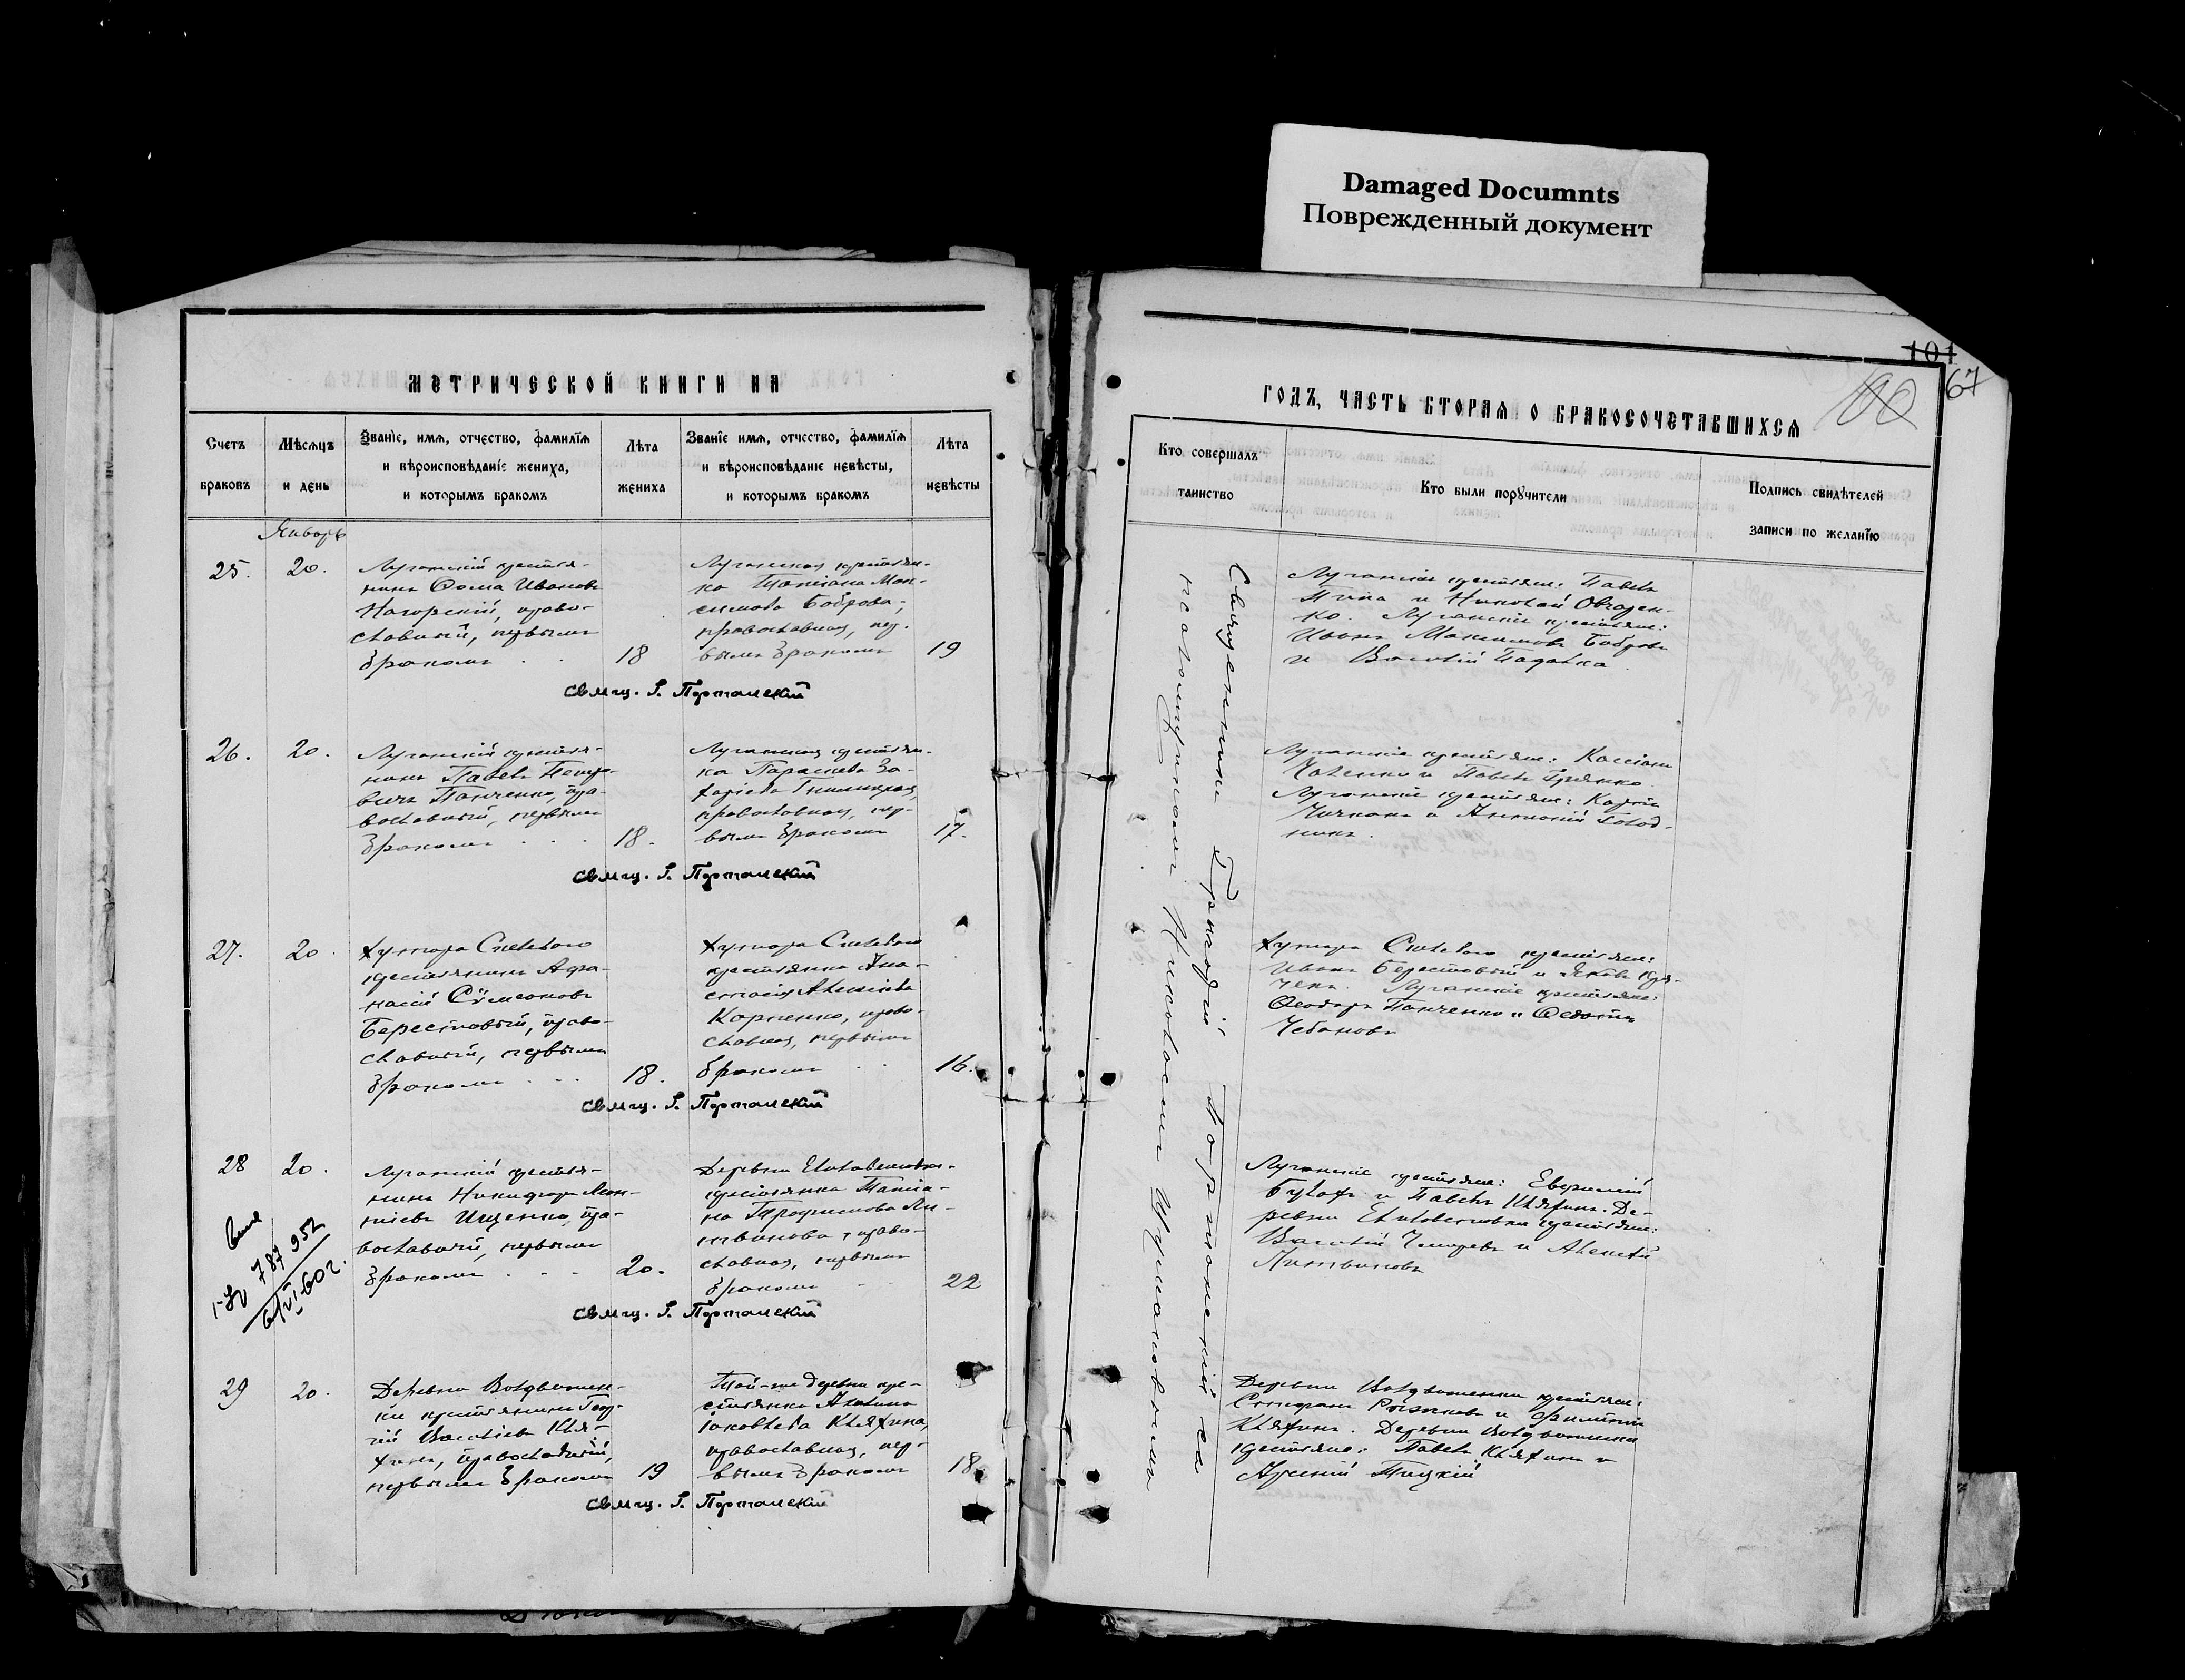 Damaged Documnts
Поврежденный документ
101
100
67
МЕТРИЧЕСКОЙ КНИГИ НА
Счетъ браковъ
Мѣсяцъ и день
Званїе, имя, отчество, фамилїя и вѣроисповѣданїе жениха, и которымъ бракомъ
Лѣта жениха
Званїе имя, отчество, фамилїя и вѣроисповѣданїе невѣсты, и которымъ бракомъ
Лѣта невѣсты
Январь
25.
20.
Луганскій крестья-
нинъ Ѳома Ивановъ
Нагорскій, право-
славный, первымъ
бракомъ
18
Луганская крестьян-
ка Татіана Мак-
симова Боброва,
православная, пер-
вымъ бракомъ
19
Свящ. Г. Портанскій
26.
20.
Луганскій крестья-
нинъ Павелъ Петро-
вичъ Панченко, пра-
вославный, первымъ
бракомъ
18.
Луганская крестьян-
ка Параскева За-
харіева
православная, пер-
вымъ бракомъ
17.
Свящ. Г. Портанскій
27.
20
Хутора
крестьянинъ Афа-
насій Сѵмеоновъ
Берестовый, право-
славный, первымъ
бракомъ
18.
Хутора
крестьянка Ана-
стасія Алексіева
Карпенко, право-
славная, первымъ
бракомъ
16.
Свящ. Г. Портанскій
28
20.
Луганскій крестья-
нинъ Никифоръ Леон-
тіевъ Ищенко, пра-
вославный, первымъ
бракомъ
20.
Деревни Елисаветовки
крестьянка Татіа-
на Трофимова Ли-
твинова, право-
славная, первымъ
бракомъ
22
787952
6/VI-60 г.
Свящ. Г. Портанскій
29
20.
Деревни Воздвижен-
ки крестьянинъ Геор-
гій Василіевъ Кля-
хинъ, православный,
первымъ бракомъ
19
Той-же деревни кре-
стьянка Акилина
Іаковлева Кляхина,
православная, пер-
вымъ бракомъ
18
Свящ. Г. Портанскій
ГОДЪ, ЧАСТЬ ВТОРАЯ О БРАКОСОЧЕТАВШИХСЯ
Кто совершалъ таинство
Кто были поручители
Подпись свидѣтелей записи по желанїю
Священникъ Григорій Портанскій съ
псаломщикомъ Николаемъ
Луганскіе крестьяне: Павелъ
и Николай Овчарен-
ко. Луганскіе крестьяне:
Иванъ Максимовъ Бобровъ
и Василій Падалка.
Луганскіе крестьяне: Кассіанъ
и Павелъ
Луганскіе крестьяне: Карпъ
и Антоній Голод-
никъ.
Хутора крестьяне:
Иванъ Берестовый и Яковъ
Луганскіе крестьяне:
Ѳеодоръ Панченко и Ѳедотъ
Чебановъ
Луганскіе крестьяне: Евфимій
и Павелъ Кляхинъ. Де-
ревни Елисаветовки крестьяне:
Василій и Алексій
Литвиновъ
Деревни Воздвиженки крестьяне:
Стефанъ и Филиппъ
Кляхинъ. Деревни Воздвиженки
крестьяне: Павелъ Кляхинъ и